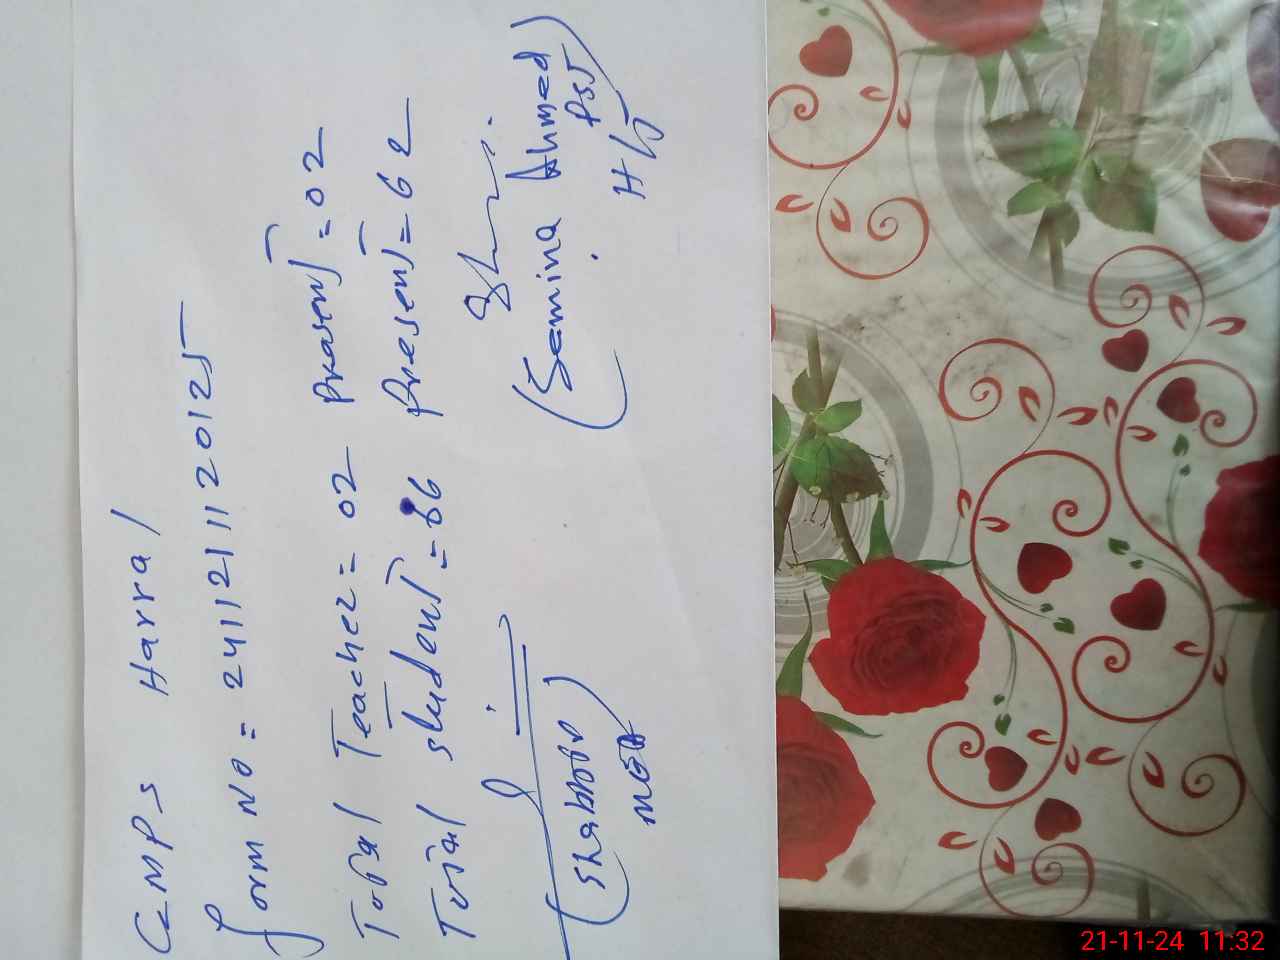 GMPS Harral
form No = 2411211120125
Total Teachez = 02 Prasent = 02
Total student = 66 Present = 62
(Shabbbv)
MEA
(Samina Ahmed)
PST
H/J
21-11-24 11:32